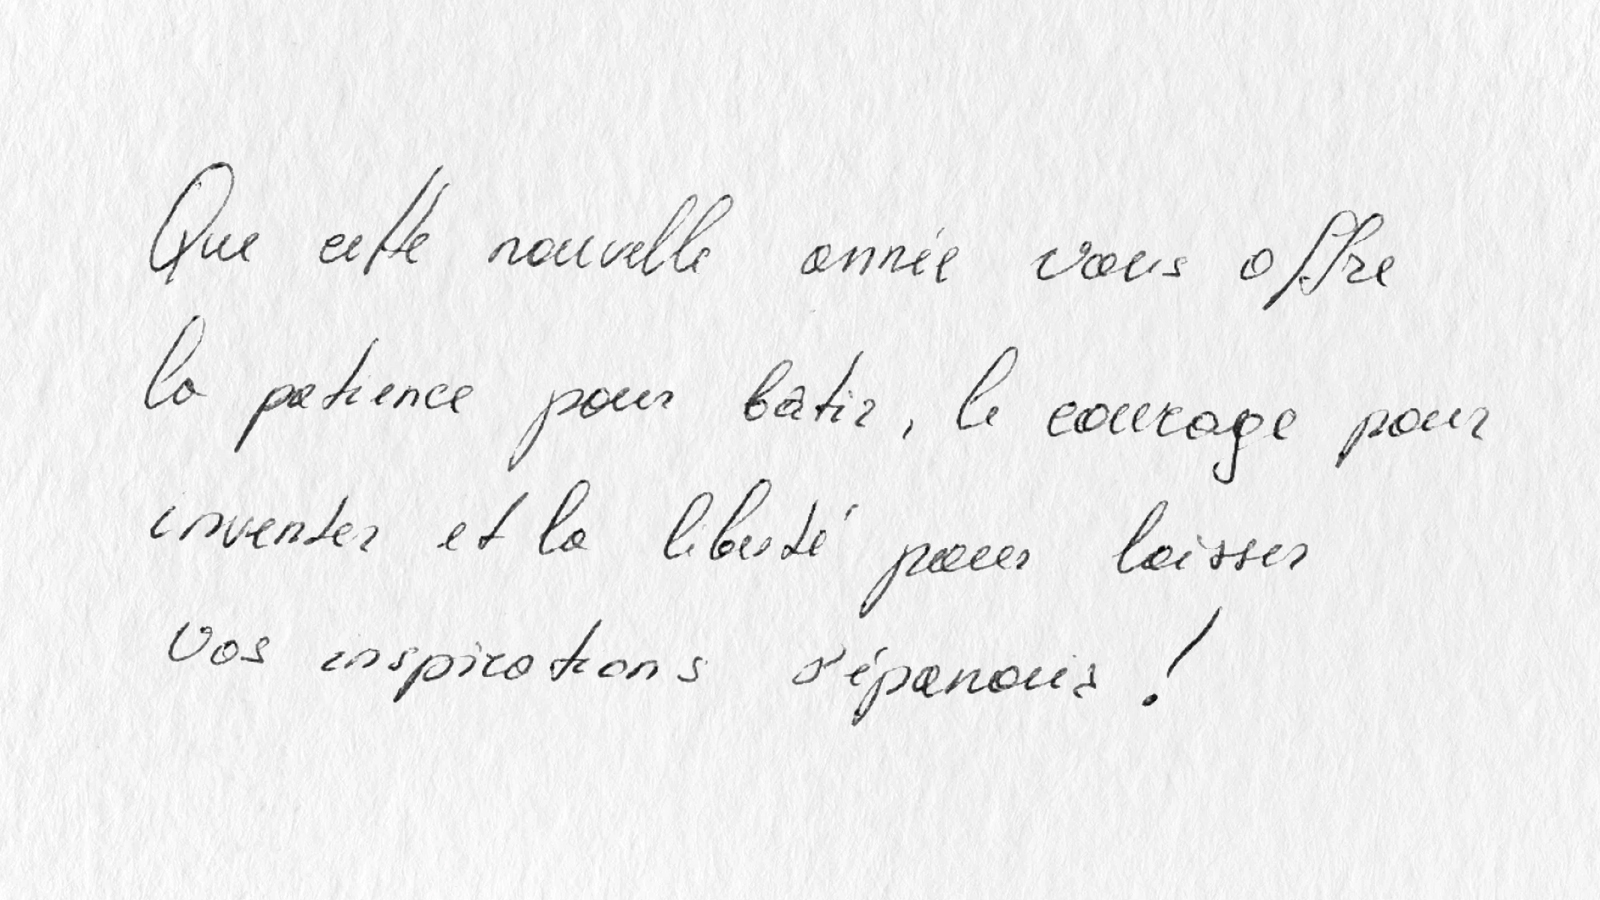 Que cette nouvelle année vous offre
la patience pour bâtir, le courage pour
inventer et la liberté pour laisser
vos inspirations s'épanouir !